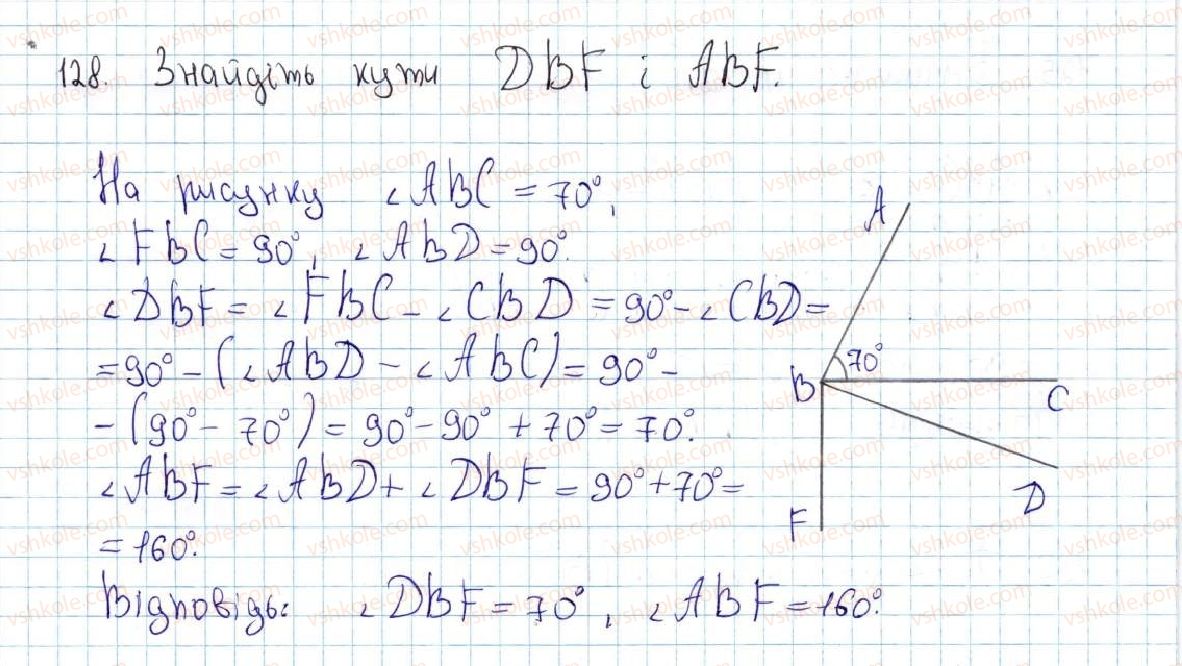 128. Знайдіть кути DBF і ABF.
На рисунку ∠ABC = 70°,
∠FBC = 90°, ∠ABD = 90°.
∠DBF = ∠FBC - ∠CBD = 90° - ∠CBD =
= 90° - (∠ABD - ∠ABC) = 90° -
- (90° - 70°) = 90° - 90° + 70° = 70°.
∠ABF = ∠ABD + ∠DBF = 90° + 70° =
= 160°.
Відповідь: ∠DBF = 70°, ∠ABF = 160°.
A
70°
B
C
D
F
vshkole.com